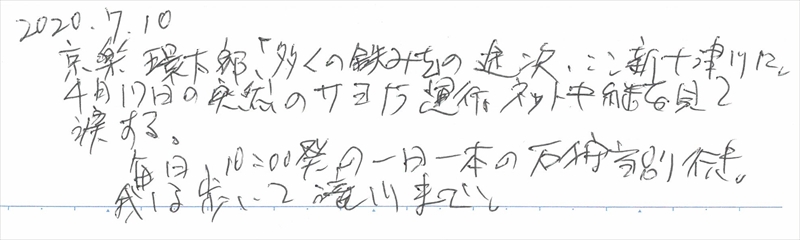 2020.7.10
京楽 環太郎、「多くの鉄みちの途次、ここ新十津川に。
4月17日の突然のサヨナラ運行。ネット中継を見て
涙する。
毎日、10:00発の一日一本の石狩当別行き。
我は歩いて滝川まで」。